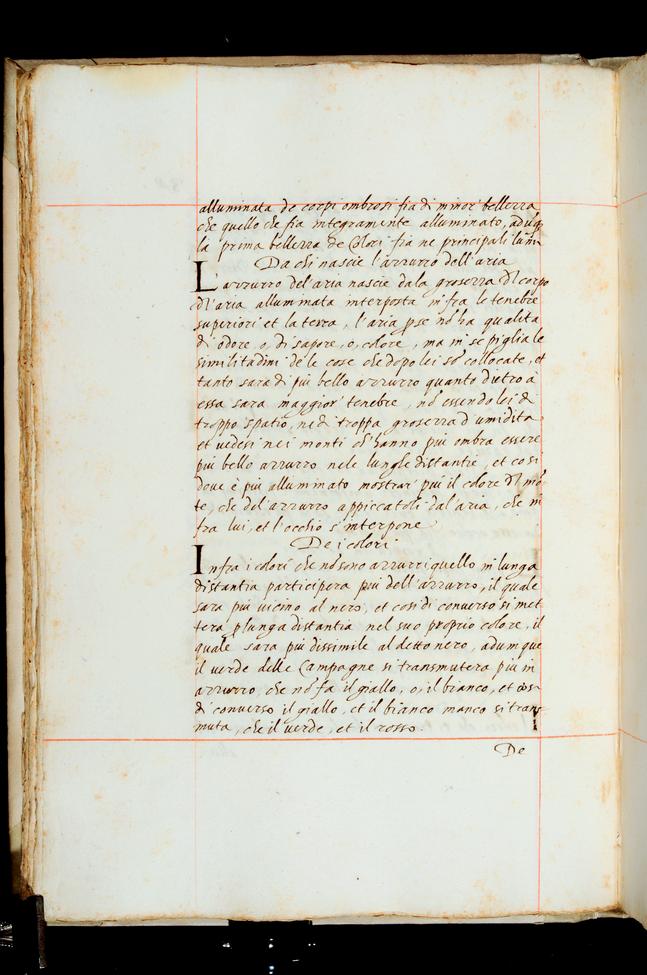 alluminata de corpi ombrosi fia di minor bellezza
che quello che fia integramente alluminato, adunq
la prima bellezza de Colori fia ne principali lumi
Da chi nascie l'azzurro dell'aria
L'azzurro del'aria nascie dala grosezza dl corpo
dl'aria alluminata interposta infra le tenebre
superiori et la terra, l'aria p se nō ha qualita
di odore, o, di sapore, o, colore, ma in se piglia le
similitudini de le cose che dopo lei sō collocate, et
tanto sara di più bello azzurro quanto dietro à
essa sara maggior' tenebre, nō essendo lei di
troppo spatio, ne di troppa grosezza d'umidita
et vedesi nei monti ch'hanno più ombra essere
più bello azzurro nele lunghe distantie, et cosi
dove è più alluminato mostrar' più il colore dl mō
te, che del'azzurro appiccatoli dal'aria, che in
fra lui, et l'occhio s'interpone
De i colori
Infra i colori che nō sono azzurri quello in lunga
distantia participera piu dell'azzurro, il quale
sara più vicino al nero, et cosi di converso si met
tera p lunga distantia nel suo proprio colore, il
quale sara più dissimile al detto nero, adunque
il verde delle Campagne si transmutera più in
azzurro, che nō fa il giallo, o, il bianco, et cosi
di converso il giallo, et il bianco manco si trans
muta, che il verde, et il rosso.
De